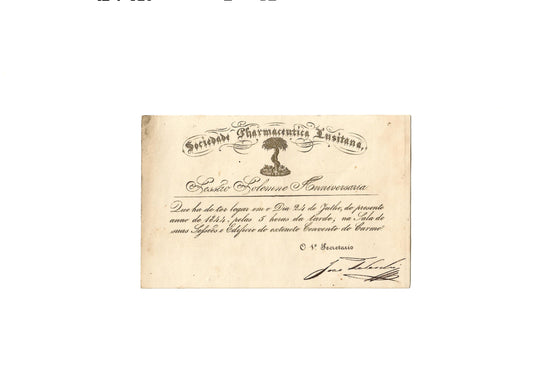 Sociedade Pharmaceutica Lusitana,
Sessão Solemne Anniversaria
Que ha de ter logar em o Dia 24 de Julho, do presente
anno de 1844, pelas 5 horas da tarde, na Sala de
suas Sessões e Edificio do extincto Convento do Carmo
O Vº Secretario
José